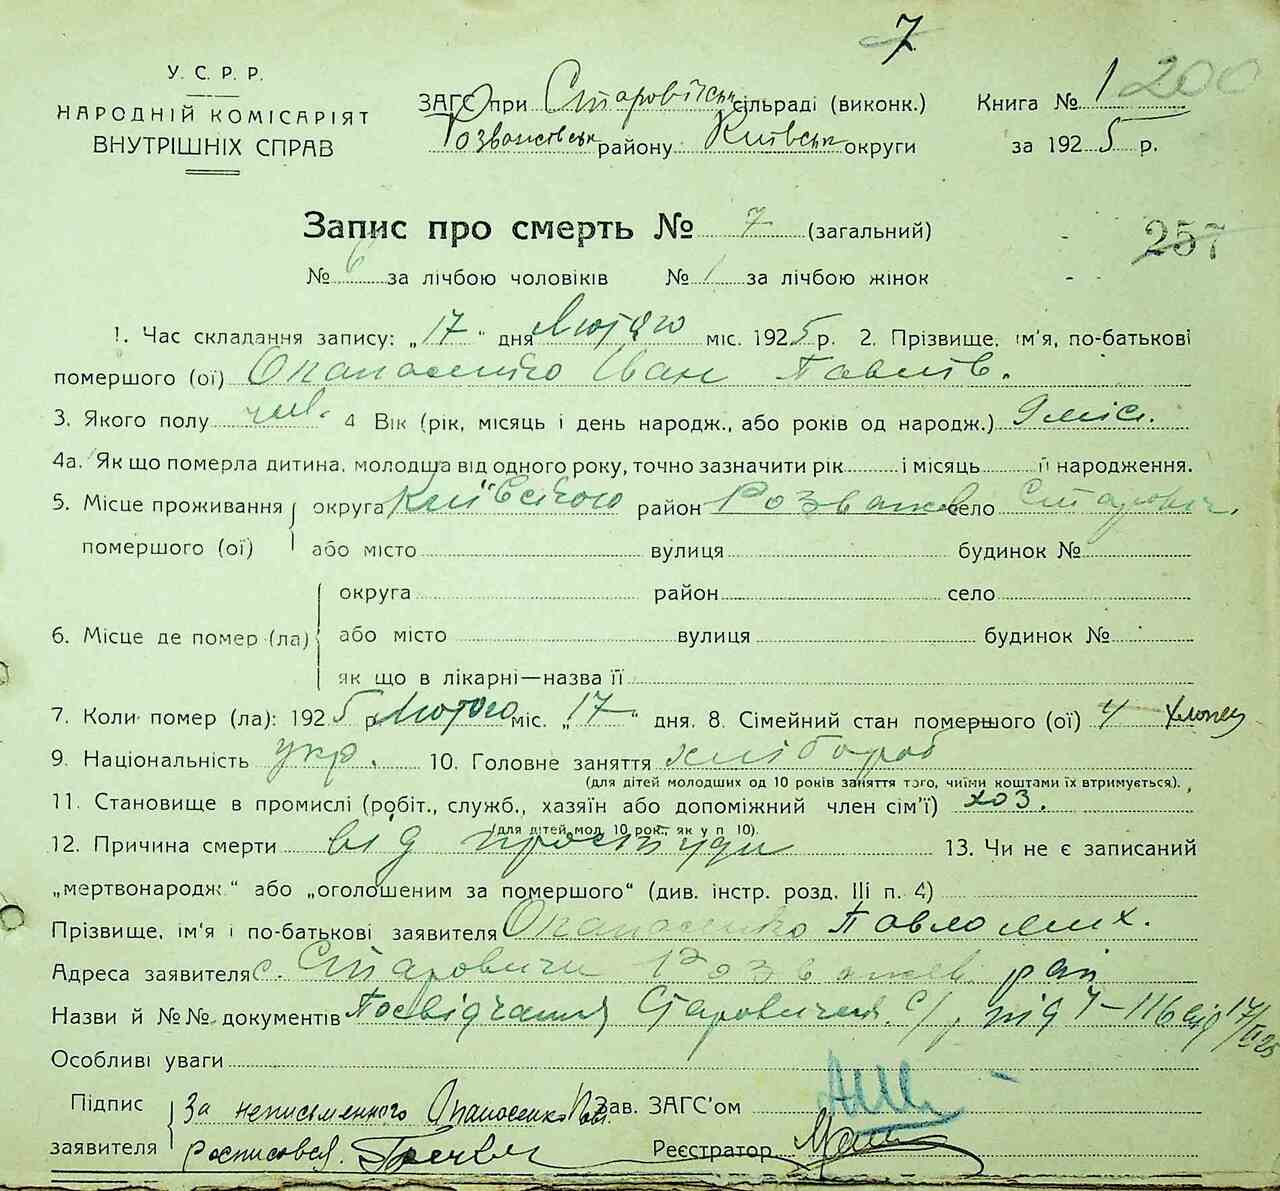 7
У. С. Р. Р.
НАРОДНІЙ КОМІСАРІЯТ
ВНУТРІШНІХ СПРАВ
ЗАГС при Старовіцьк сільраді (виконк.)
Розважівськ району Київськ округи
Книга № 1 200
за 1925 р.
Запис про смерть № 7 (загальний)
257
№ 6 за лічбою чоловіків № 1 за лічбою жінок
1. Час складання запису: „17" дня Лютого міс. 1925 р. 2. Прізвище, ім'я, по-батькові
помершого (ої) Опанасенко Іван Павлів.
3. Якого полу чол. 4 Вік (рік, місяць і день народж., або років од народж.) 9 міс.
4а. Як що померла дитина, молодша від одного року, точно зазначити рік і місяць її народження.
5. Місце проживання округа Київського район Розважів село Старович.
помершого (ої) або місто вулиця будинок №
округа район село
6. Місце де помер (ла) або місто вулиця будинок №
як що в лікарні—назва її
7. Коли помер (ла): 1925 р. Лютого міс. „17" дня. 8. Сімейний стан помершого (ої) хлопец
9. Національність укр. 10. Головне заняття хлібороб
(для дітей молодших од 10 років заняття того, чиїми коштами їх втримується).
11. Становище в промислі (робіт., служб., хазяїн або допоміжний член сім'ї) хоз.
(для дітей мол. 10 рок., як у п 10).
12. Причина смерти від простуди 13. Чи не є записаний
„мертвонародж." або „оголошеним за помершого" (див. інстр. розд. III п. 4)
Прізвище, ім'я і по-батькові заявителя Опанасенко Павло Мих.
Адреса заявителя с. Старовичи Розважев. рай.
Назви й №№ документів Посвідчання Старовичан. с/р від 17/II 25
Особливі уваги
Підпис За неписьменного Опанасенко Пав. Зав. ЗАГС'ом
заявителя росписовся. Реєстратор